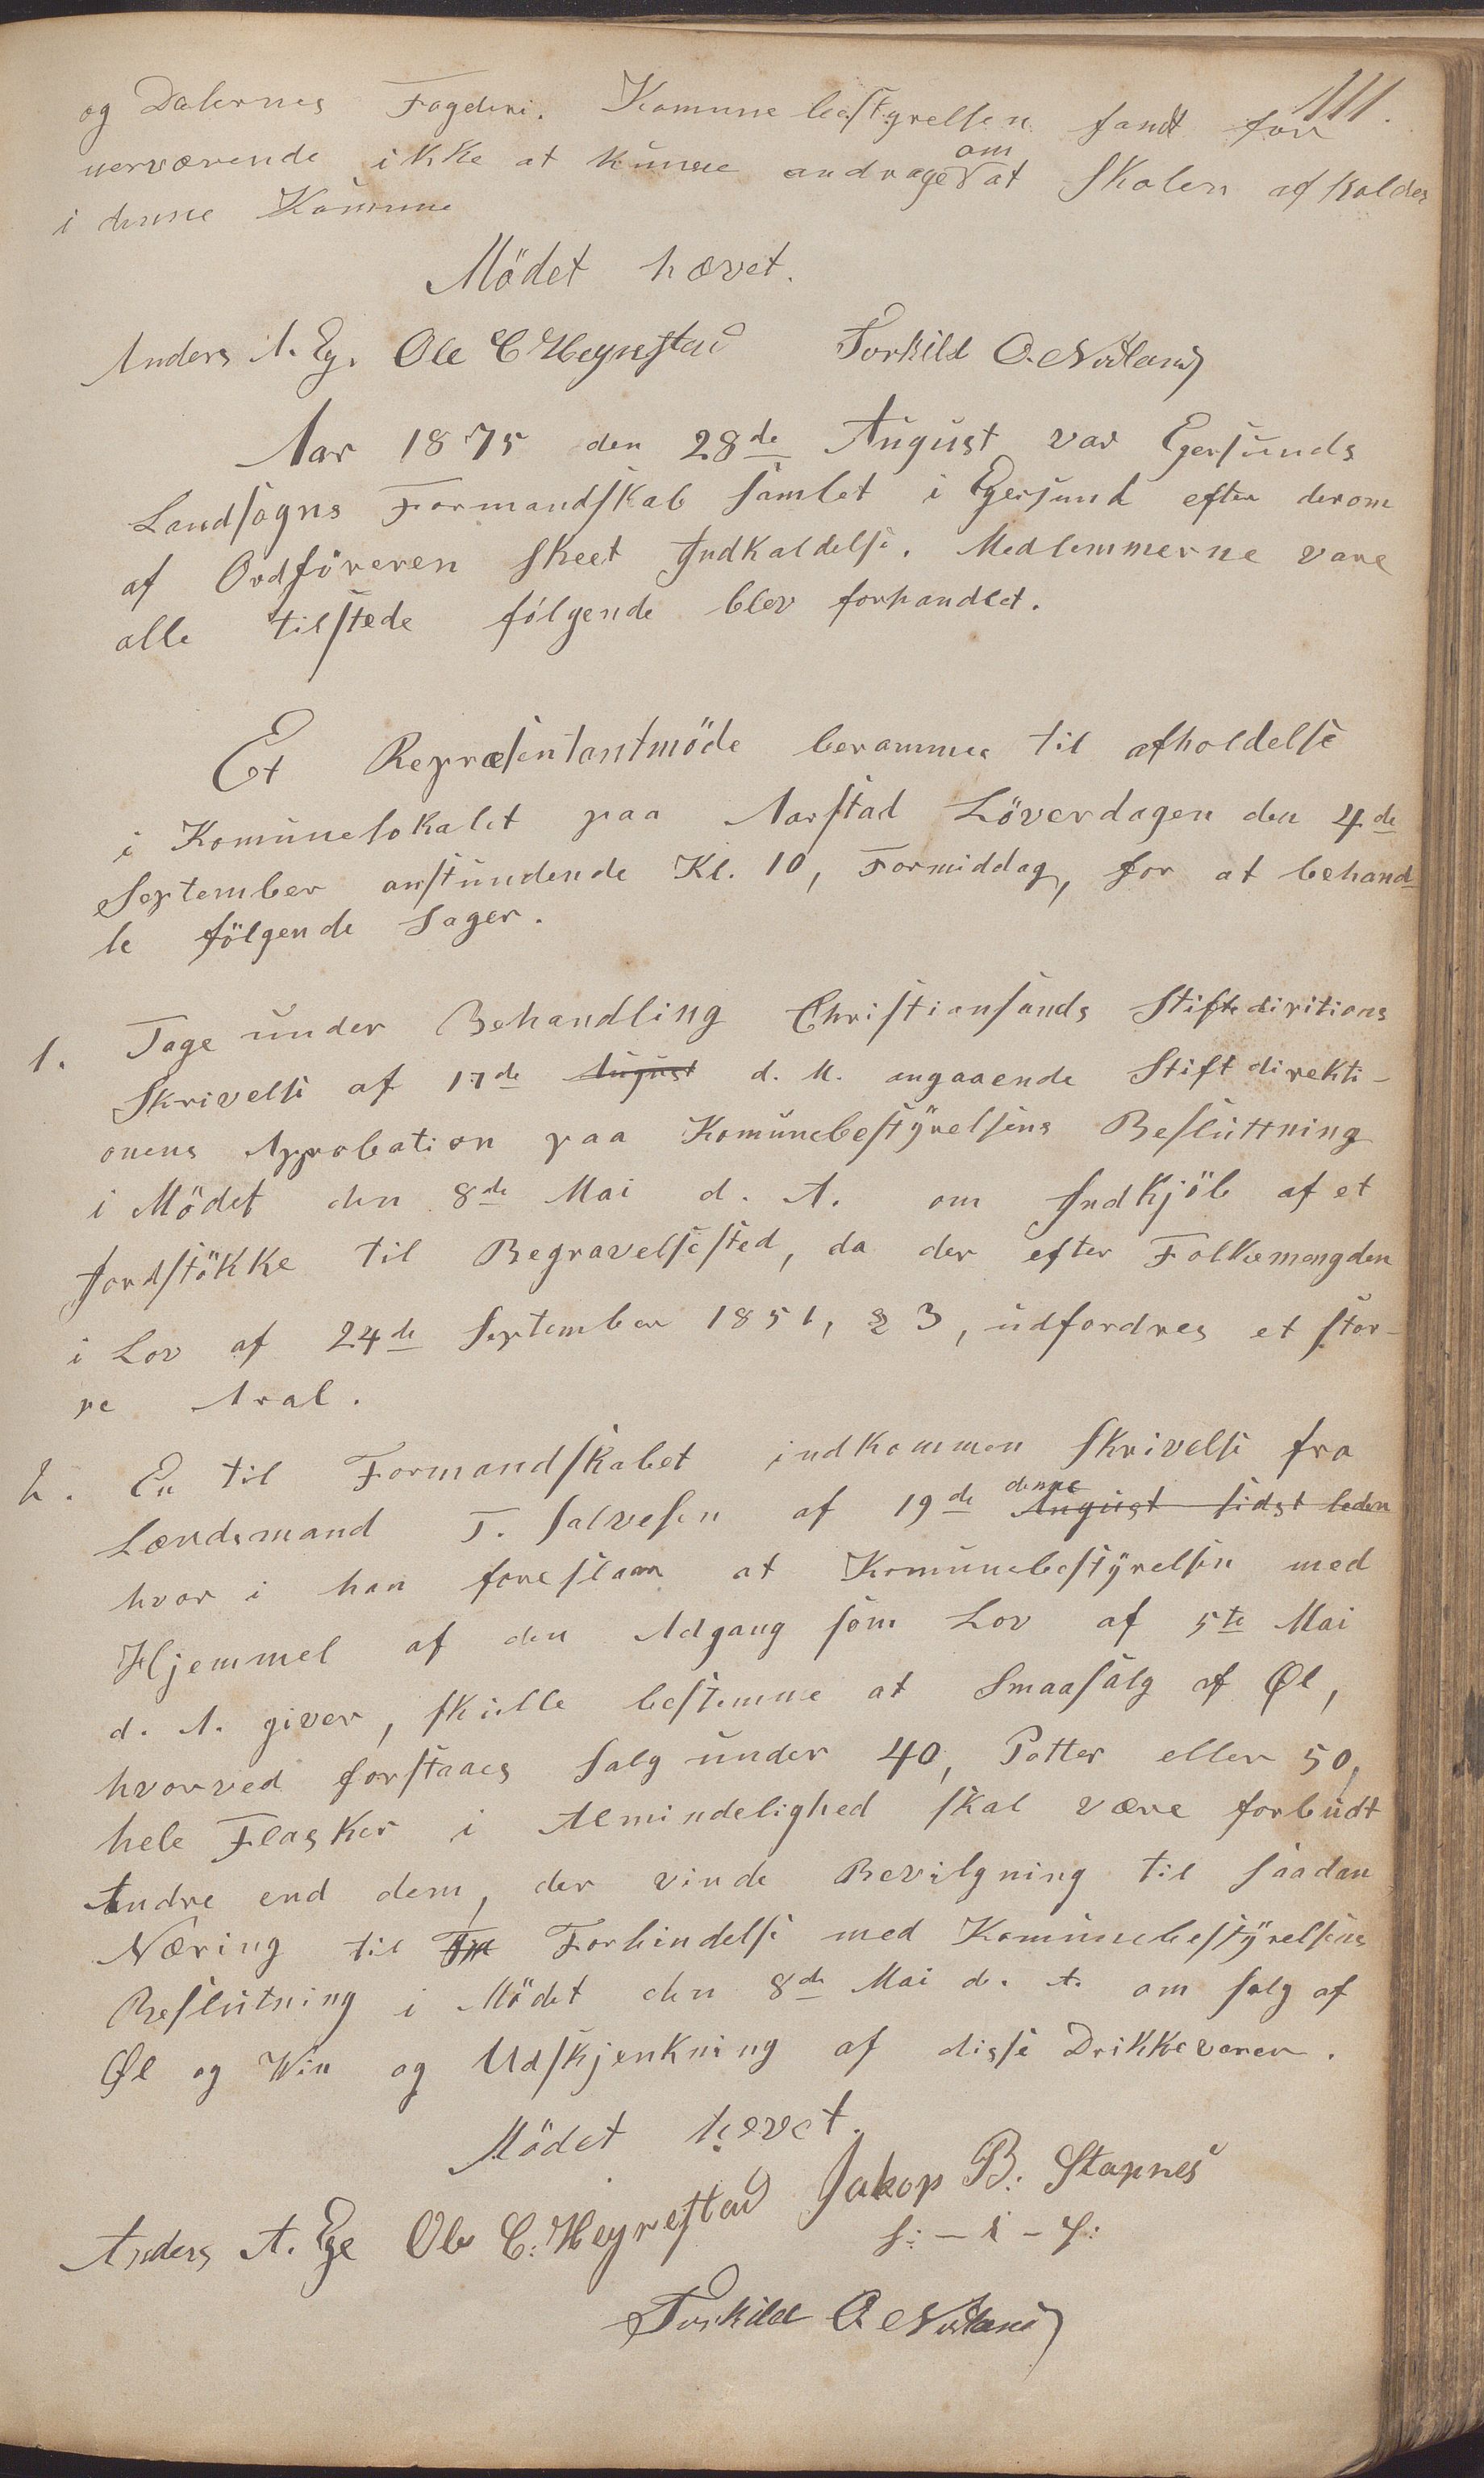 111.
og Dalernes Fogderi. Komunebestyrelsen fandt for
nerværende ikke at kunne andrage om at Skolen afholdes
i denne Komune
Mödet hævet.
Anders A. Eg. Ole C Hegrestad Torkild O. Nodland
Aar 1875 den 28de August var Egersunds
Landsogns Formandskab samlet i Egersund efter derom
af Ordföreren skeet Indkaldelse. Medlemmerne vare
alle tilstede fölgende blev forhandlet.
Et Repræsentantmöde berammes til afholdelse
i Komunelokalet paa Aarstad Löverdagen den 4de
September anstundende Kl. 10, Formiddag, for at behand-
le fölgende Sager.
1. Tage under Behandling Christiansands Stiftsdiritions
Skrivelse af 17de August d. M. angaaende Stiftdirekti-
onens Approbation paa Komunebestyrelsens Besluttning
i Mödet den 8de Mai d. A. om Indkjöb af et
Jordstökke til Begravelsested, da der efter Folkemengden
i Lov af 24de September 1851, § 3, udfordres et stör-
re Aral.
2. En til Formandskabet indkommen Skrivelse fra
Lændsmand T. Salvesen af 19de denne August sidst leden
hvor i han foreslaar at Komunebestyrelsen med
Hjemmel af den Adgang som Lov af 5te Mai
d. A. giver, skulle bestemme at Smaasalg af Øl,
hvorved forstaaes Salg under 40, Potter eller 50,
hele Flasker i Almindelighed skal være forbudt
Andre end dem, der vinde Bevilgning til saadan
Næring til Forhindelse med Komunebestyrelsens
Beslutning i Mödet den 8de Mai d. A. om Salg af
Øl og Win og Udskjenkning af disse Drikkevarer.
Mödet hævet.
Anders A. Ege Ole C: Hegrestad Jakop B: Stapnes
Torkild O. Nodland